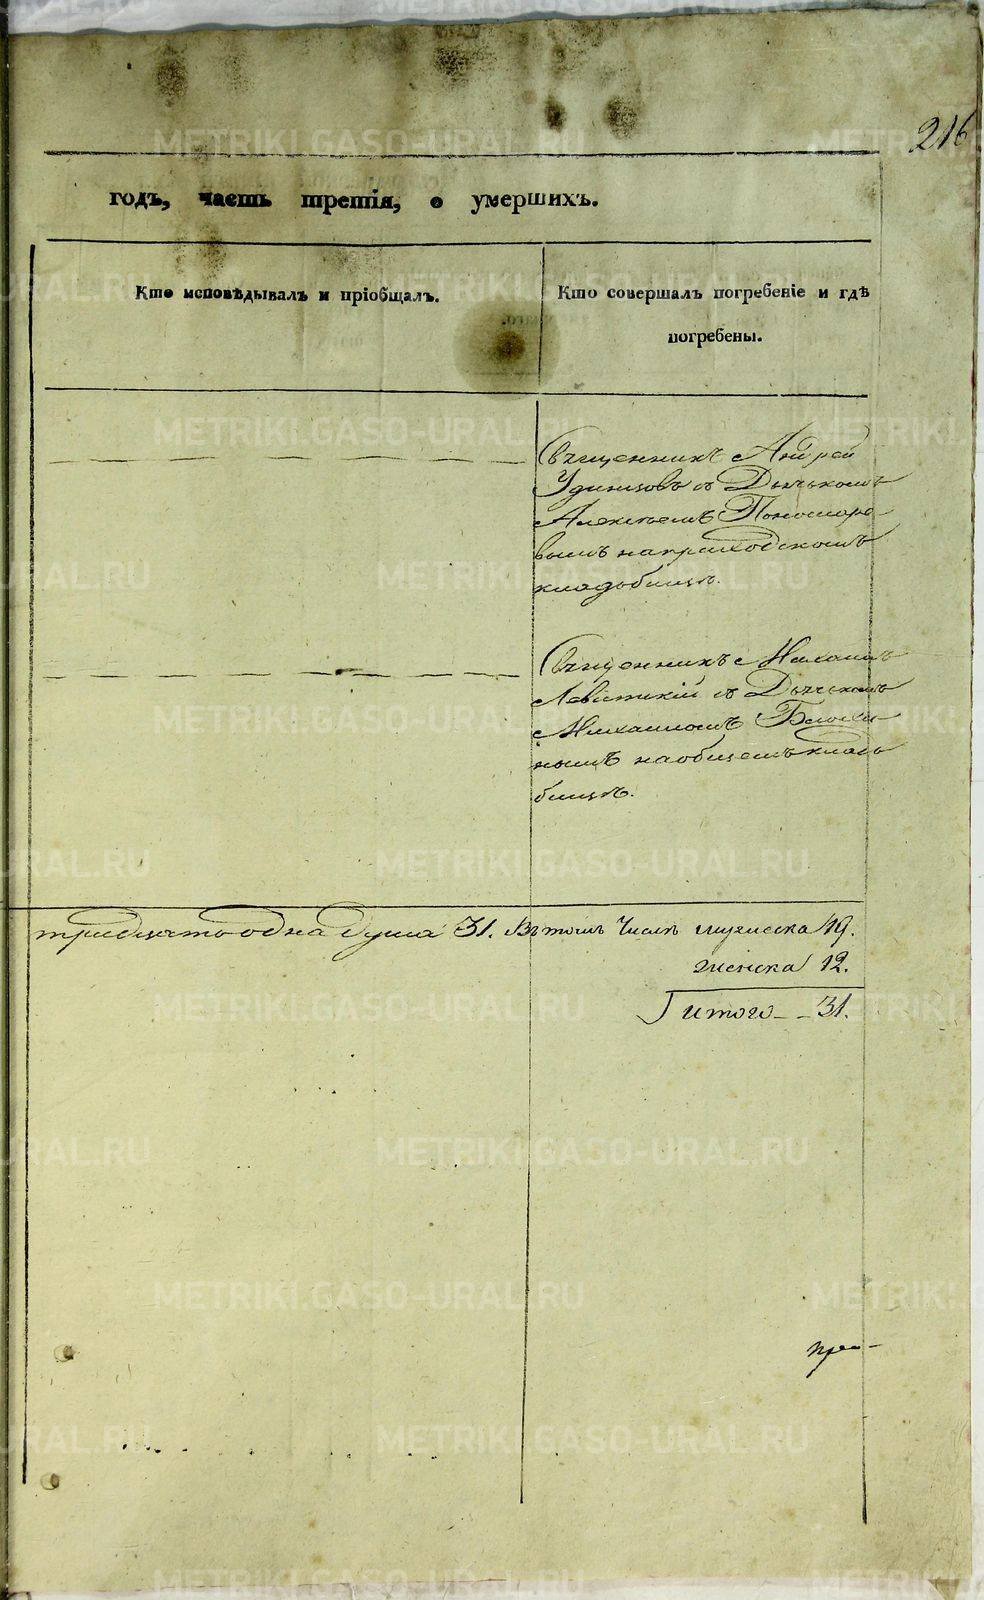 216
годъ, часть третія, о умершихъ.
Кто исповѣдывалъ и пріобщалъ.
Кто совершалъ погребеніе и гдѣ
погребены.
Священникъ Андрей
Удинцовъ съ Дьячькомъ
Алексѣемъ Пономаре
вымъ на приходскомъ
кладбищѣ.
Священникъ Михаилъ
Левитскій съ Дьячькомъ
Михаиломъ
нымъ на общемъ клад
бищѣ.
тридцать одна душа 31. Въ томъ числѣ мужеска 19.
женска 12.
итого - - 31.
METRIKI.GASO-URAL.RU